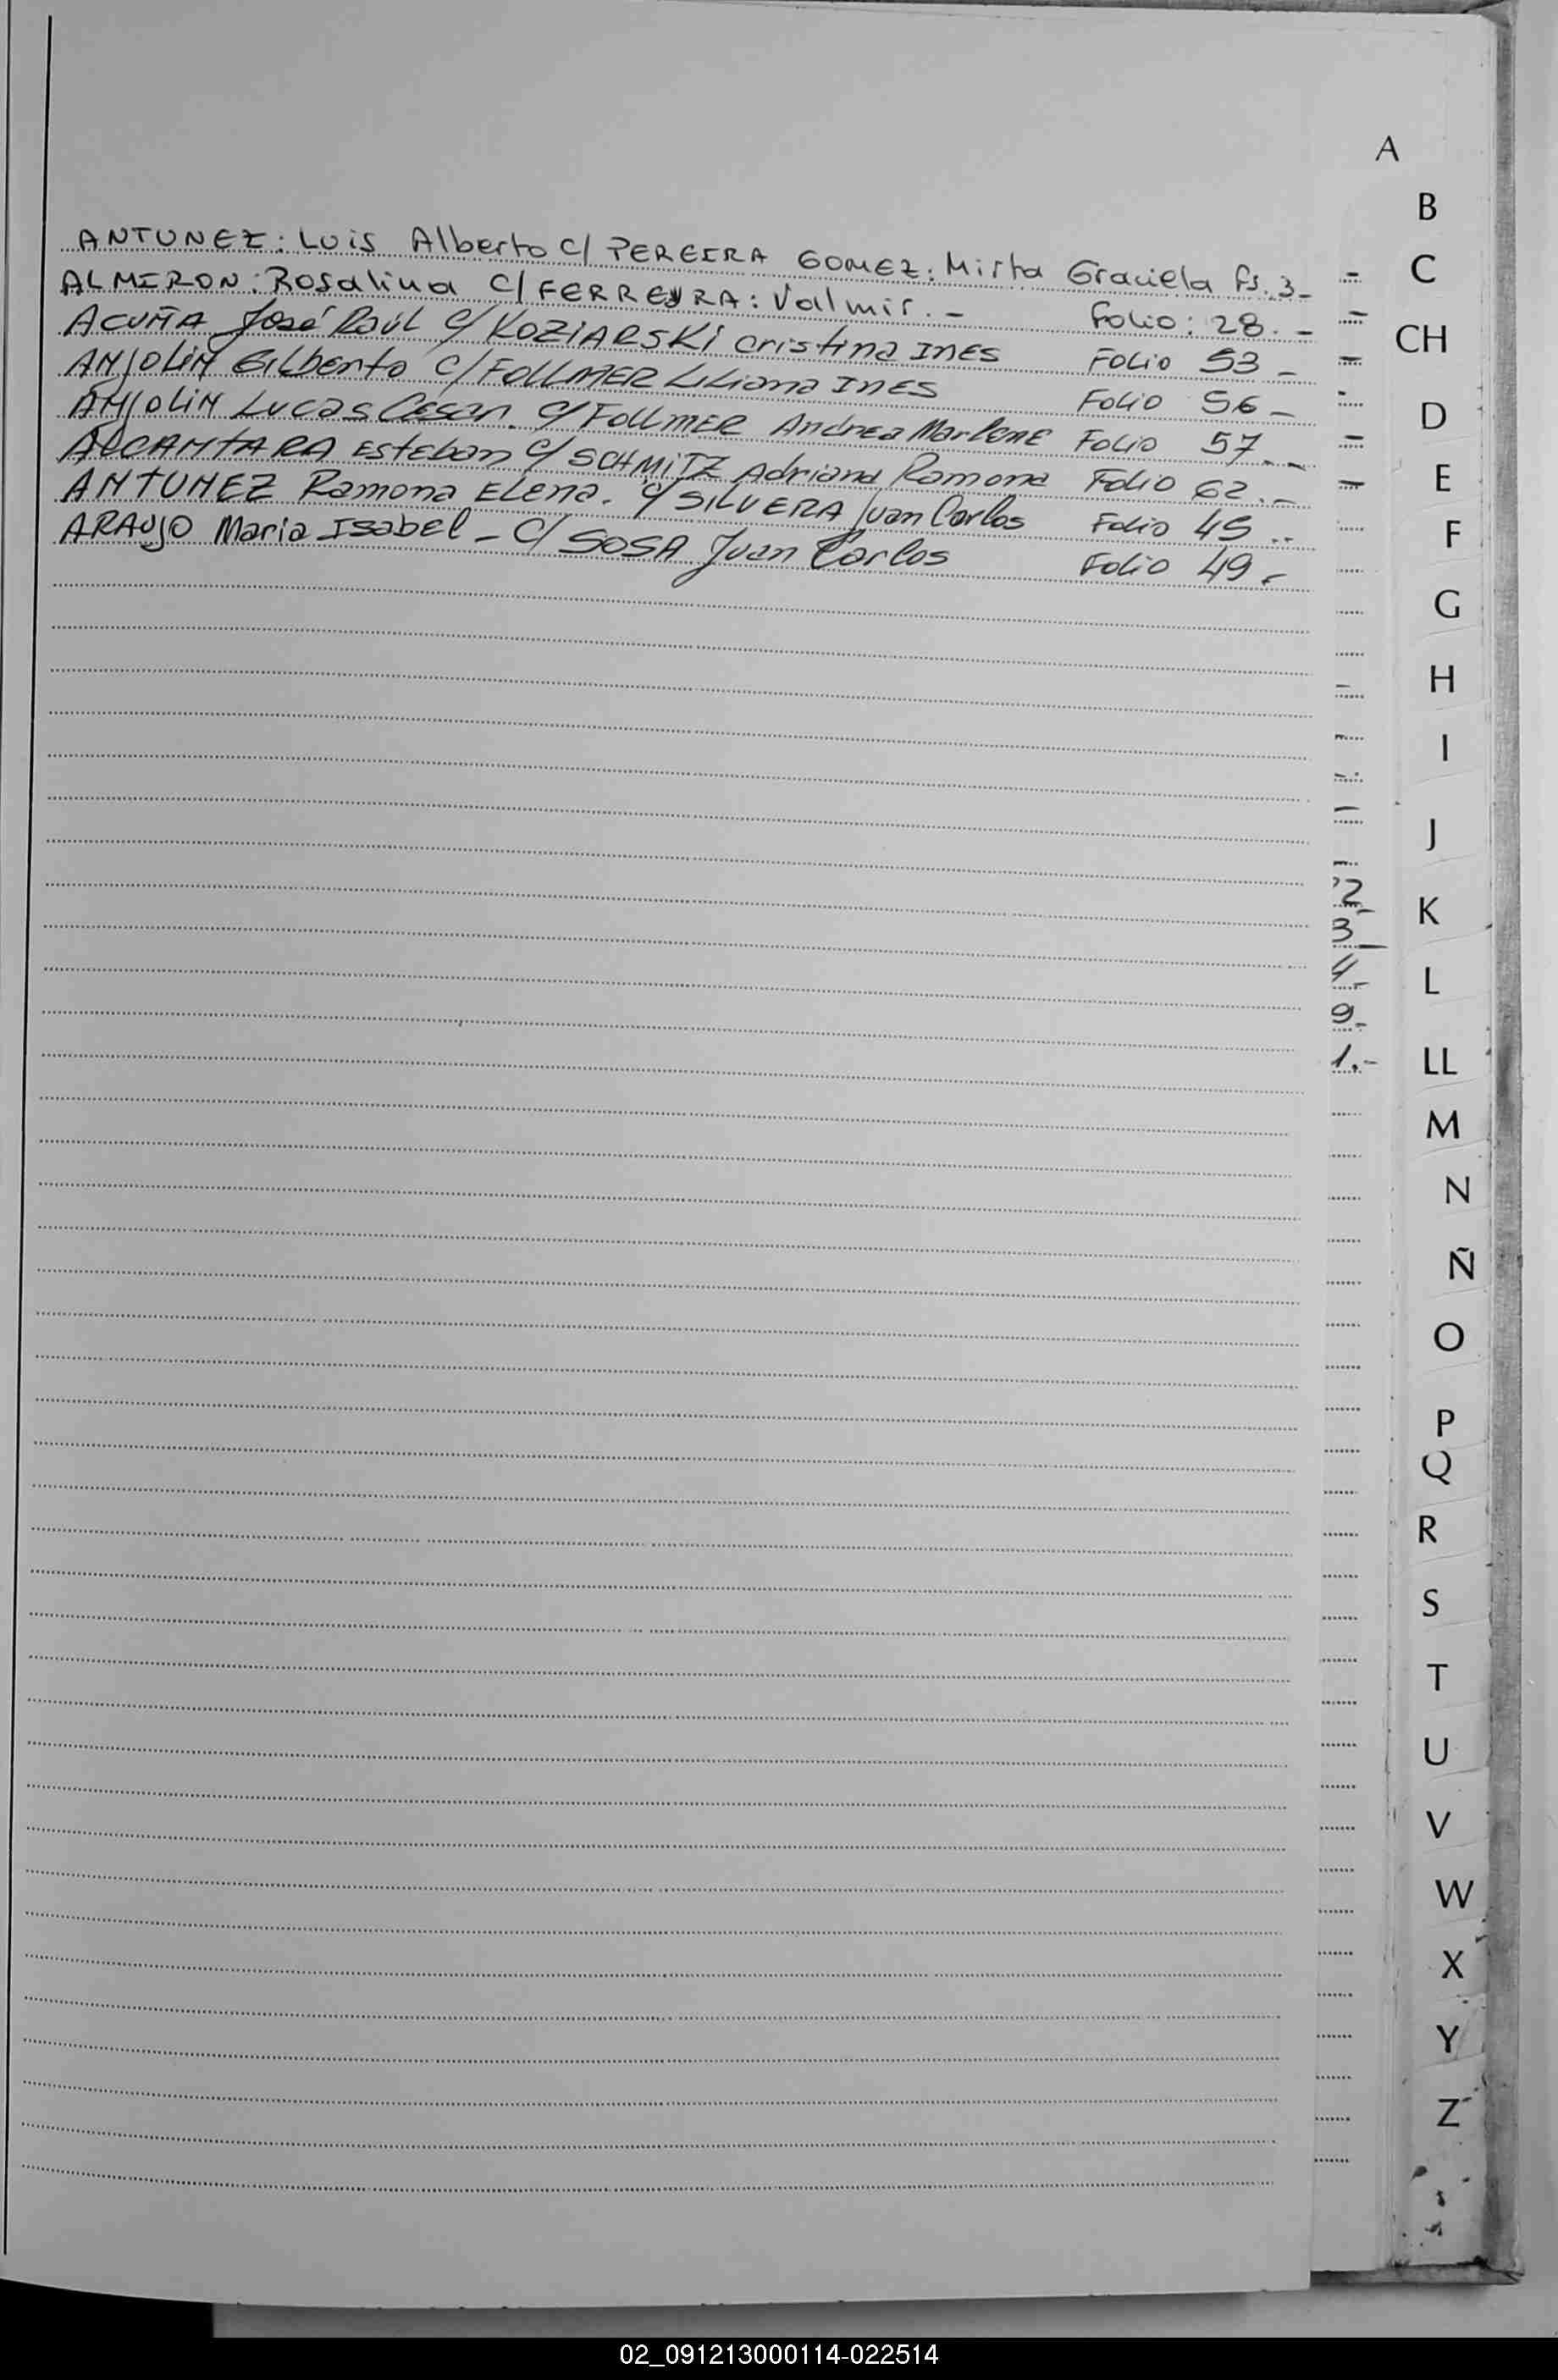 ANTUNEZ: Luis Alberto c/ PEREIRA GOMEZ: Mirta Graciela fs. 3-
ALMIRON: Rosalina c/ FERREYRA: Valmir. - Folio: 28. -
ACUÑA José Raúl c/ KOZIARSKI Cristina INES Folio 53 -
ANJOLIN Gilberto c/ FOLLMER Liliana INES Folio 56 -
ANJOLIN Lucas César. c/ FOLLMER Andrea Marlene Folio 57.-
ALCANTARA Esteban c/ SCHMITZ Adriana Ramona Folio 62.-
ANTUNEZ Ramona Elena. c/ SILVERA Juan Carlos Folio 45..
ARAUJO Maria Isabel - c/ SOSA Juan Carlos Folio 49.-
2-
3-
4-
9-
1.-
A
B
C
CH
D
E
F
G
H
I
J
K
L
LL
M
N
Ñ
O
P
Q
R
S
T
U
V
W
X
Y
Z
02_091213000114-022514